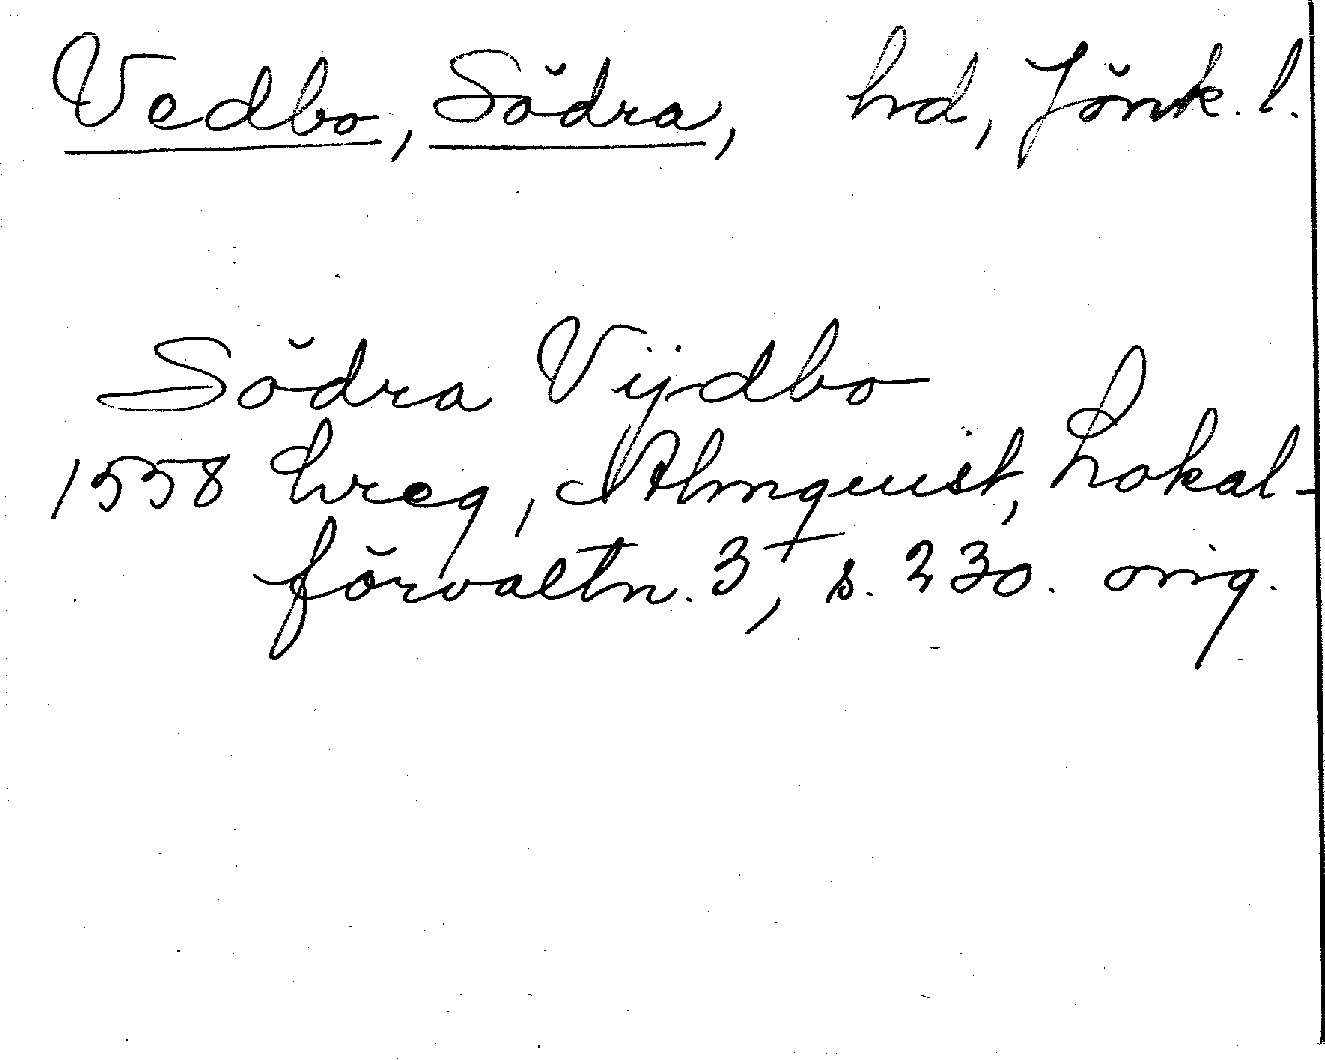 Vedbo, Södra, hd, Jönk. l.
Södra Vijdbo
1558 hreg, Almquist, Lokal-
förvaltn. 3, s. 230. orig.